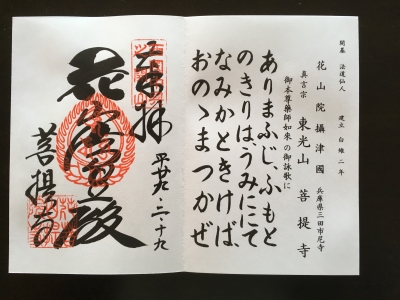 開基 法道仙人 建立 白雉二年
花山院攝津國 兵庫県三田市尼寺
真言宗 東光山 菩提寺
御本尊藥師如來の御詠歌に
ありまふじ、ふもと
のきりは、うみににて
なみかときけば、
おのゝまつかぜ
奉拝 平廿九・二・十九
花山法皇殿
菩提寺